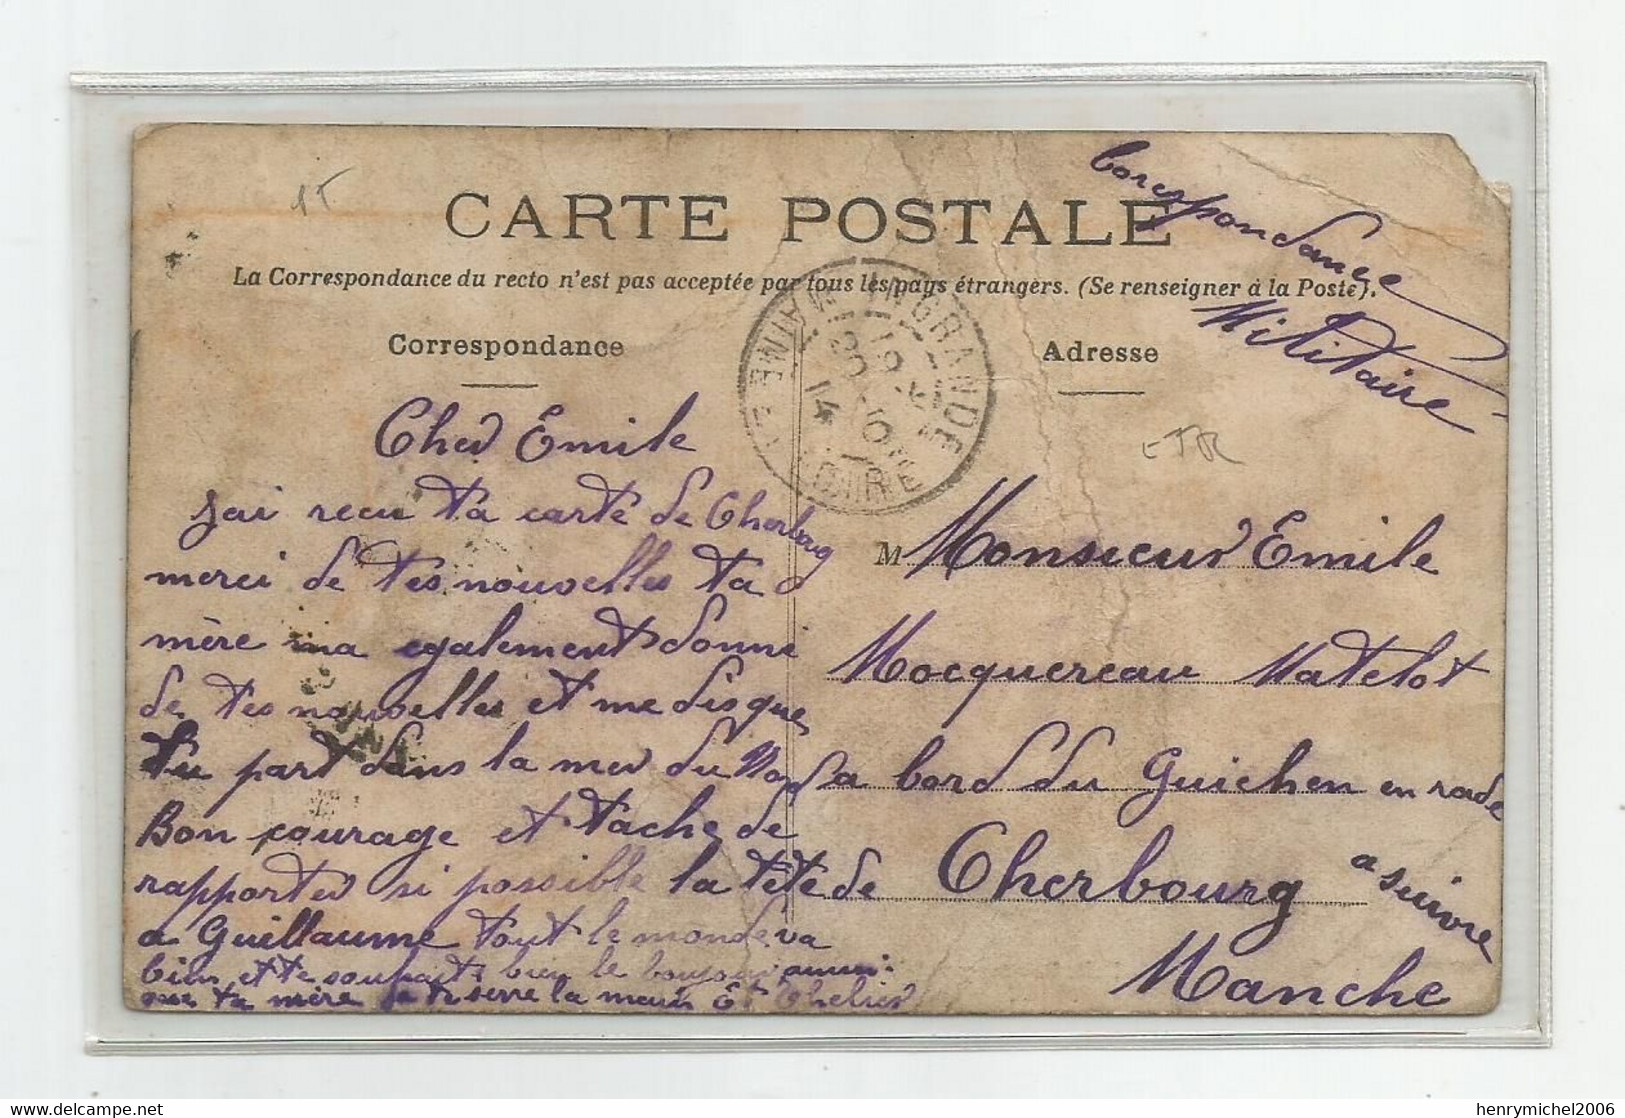 1T
Corespondance
Militaire
CARTE POSTALE
La Correspondance du recto n'est pas acceptée par tous les pays étrangers. (Se renseigner à la Poste).
Correspondance
Adresse
INGRANDE
MAINE ET LOIRE
14
Cher Emile
jai recu ta carte de Cherbourg
merci de tes nouvelles ta
mère ma egalement donné
de tes nouvelles et me dis que
tu part dans la mer du Nord
Bon courage et tache de
rapporter si possible la tête de
a Guillaume tout le monde va
bien et te souhaite bien le bonjour
que ta mère je te serre la main
M Monsieur Emile
Mocquereau Matelot
a bord du Guichen en rade
Cherbourg a suivre
Manche
henrymichel2006